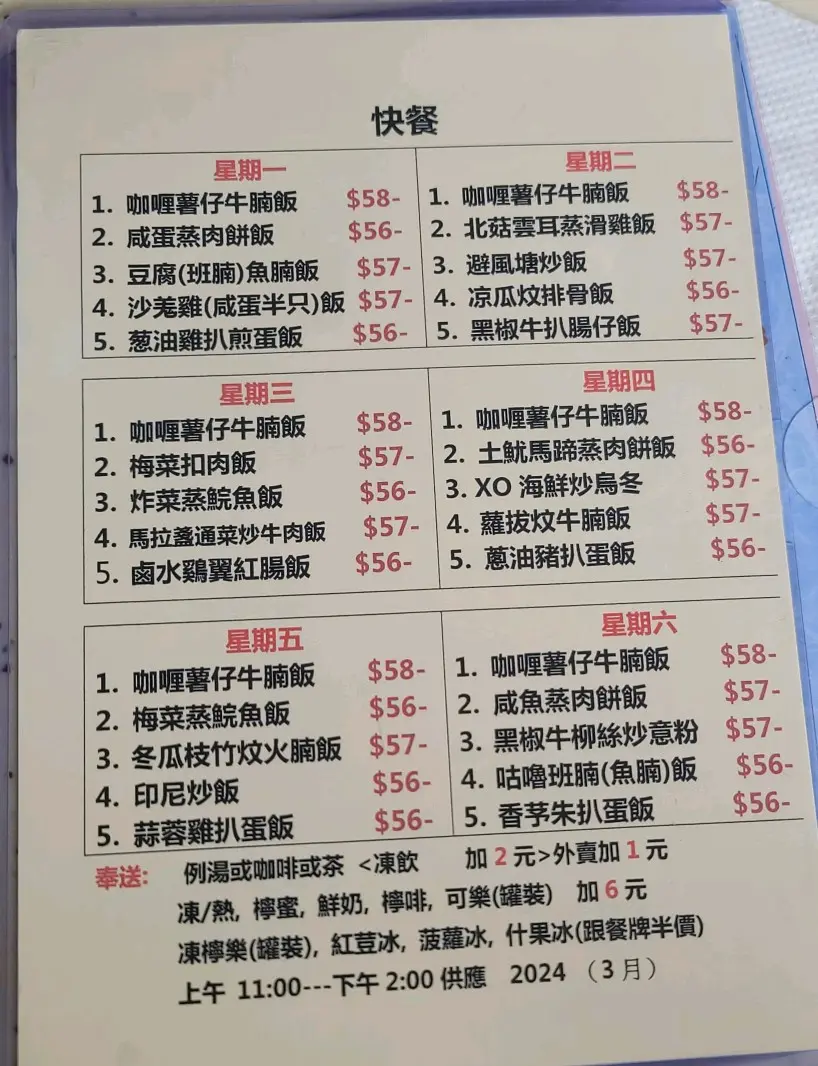 快餐
星期一
1. 咖喱薯仔牛腩飯 $58-
2. 咸蛋蒸肉餅飯 $56-
3. 豆腐(班腩)魚腩飯 $57-
4. 沙羗雞(咸蛋半只)飯 $57-
5. 葱油雞扒煎蛋飯 $56-
星期二
1. 咖喱薯仔牛腩飯 $58-
2. 北菇雲耳蒸滑雞飯 $57-
3. 避風塘炒飯 $57-
4. 凉瓜炆排骨飯 $56-
5. 黑椒牛扒腸仔飯 $57-
星期三
1. 咖喱薯仔牛腩飯 $58-
2. 梅菜扣肉飯 $57-
3. 炸菜蒸鯇魚飯 $56-
4. 馬拉盞通菜炒牛肉飯 $57-
5. 鹵水鷄翼紅腸飯 $56-
星期四
1. 咖喱薯仔牛腩飯 $58-
2. 土魷馬蹄蒸肉餅飯 $56-
3. XO 海鮮炒烏冬 $57-
4. 蘿拔炆牛腩飯 $57-
5. 蔥油豬扒蛋飯 $56-
星期五
1. 咖喱薯仔牛腩飯 $58-
2. 梅菜蒸鯇魚飯 $56-
3. 冬瓜枝竹炆火腩飯 $57-
4. 印尼炒飯 $56-
5. 蒜蓉雞扒蛋飯 $56-
星期六
1. 咖喱薯仔牛腩飯 $58-
2. 咸魚蒸肉餅飯 $57-
3. 黑椒牛柳絲炒意粉 $57-
4. 咕嚕班腩(魚腩)飯 $56-
5. 香芧朱扒蛋飯 $56-
奉送: 例湯或咖啡或茶 <凍飲 加 2 元>外賣加 1 元
凍/熱, 檸蜜, 鮮奶, 檸啡, 可樂(罐裝) 加 6 元
凍檸樂(罐裝), 紅荳冰, 菠蘿冰, 什果冰(跟餐牌半價)
上午 11:00---下午 2:00 供應 2024 （3 月）